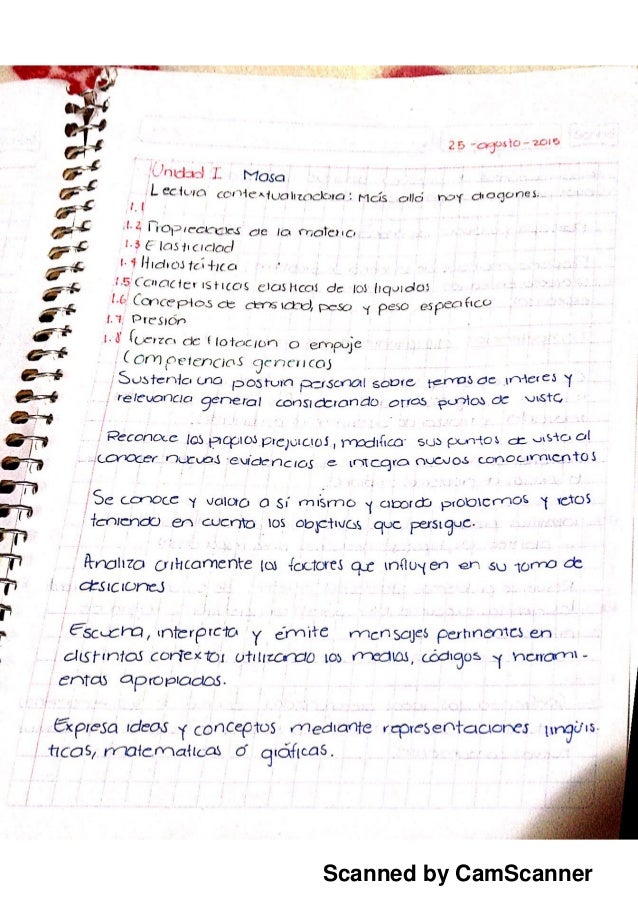 25-agosto-2015
Unidad I Masa
Lectura contextualizadora: Más allá hay dragones
1.1
1.2 Propiedades de la materia
1.3 Elasticidad
1.4 Hidrostática
1.5 Caracteristicas elasticas de los liquidos
1.6 Conceptos de densidad, peso y peso especifico
1.7 Presión
1.8 fuerza de flotacion o empuje
Competencias genericas
Sustenta una postura personal sobre temas de interes y
relevancia general considerando otros puntos de vista
Reconoce los propios prejuicios, modifica sus puntos de vista al
conocer nuevas evidencias e integra nuevos conocimientos
Se conoce y valora a sí mismo y aborda problemas y retos
teniendo en cuenta los objetivos que persigue.
Analiza criticamente los factores que influyen en su toma de
desiciones
Escucha, interpreta y émite mensajes pertinentes en
distintos contextos utilizando los medios, códigos y herrami-
entas apropiados.
Expresa ideas y conceptos mediante representaciones lingüis-
ticas, matematicas ó gráficas.
Scanned by CamScanner